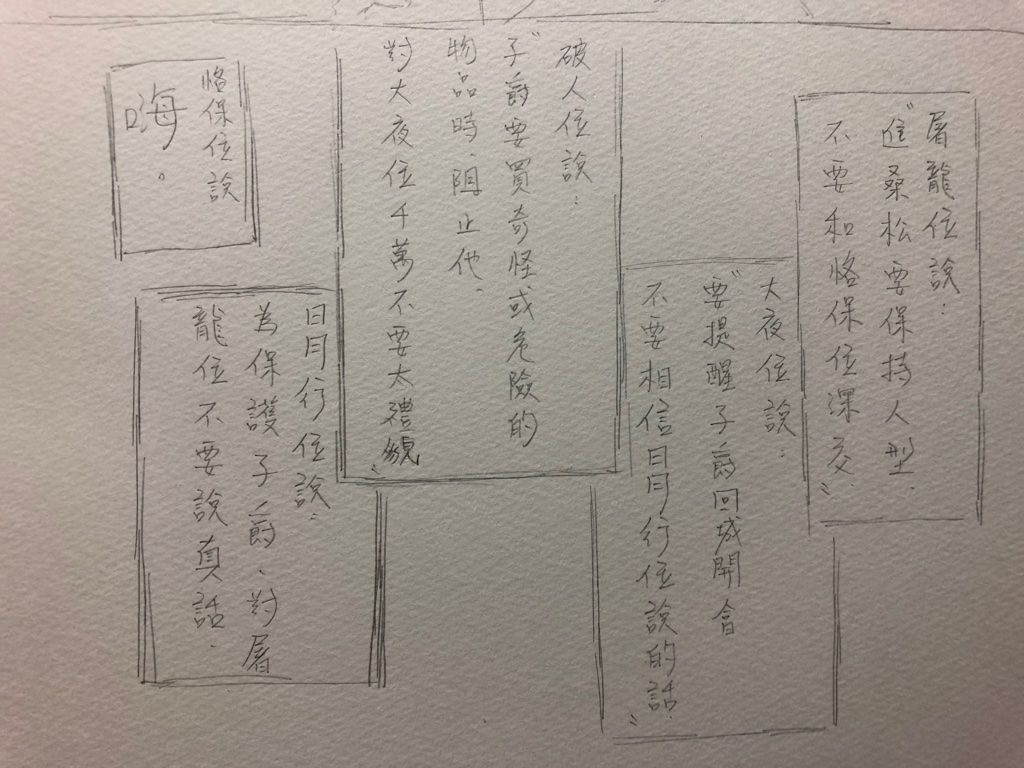 屠龍位說：
“進桑松要保持人型.
不要和恪保位深交”
大夜位說：
“要提醒子爵回城開會
不要相信日月行位說的話.”
破人位說：
“子爵要買奇怪或危險的
物品時、阻止他、
對大夜位千萬不要太禮貌”
日月行位說：
為保護子爵、對屠
龍位不要說真話.
恪保位說
嗨。